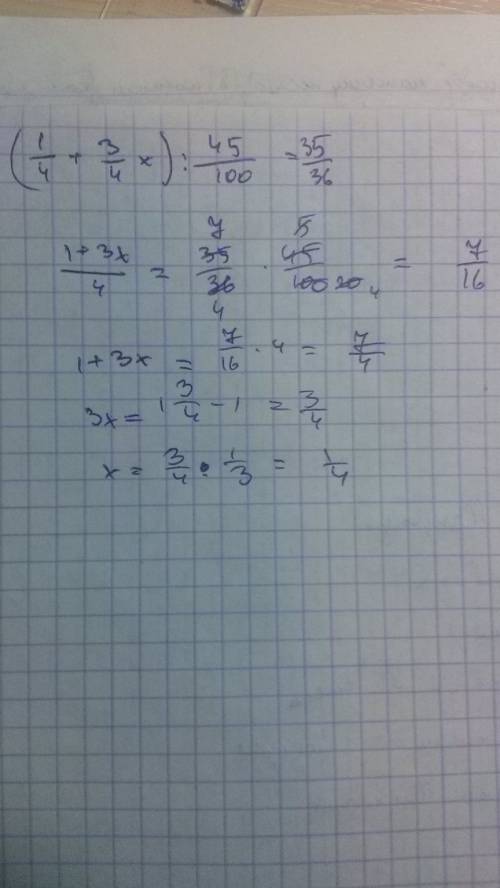 (1/4 + 3/4 x) : 45/100 = 35/36
(1+3x)/4 = 35/36 · 45/100 = 7/16
7 5 4 20 4
1+3x = 7/16 · 4 = 7/4
3x = 1 3/4 - 1 = 3/4
x = 3/4 · 1/3 = 1/4